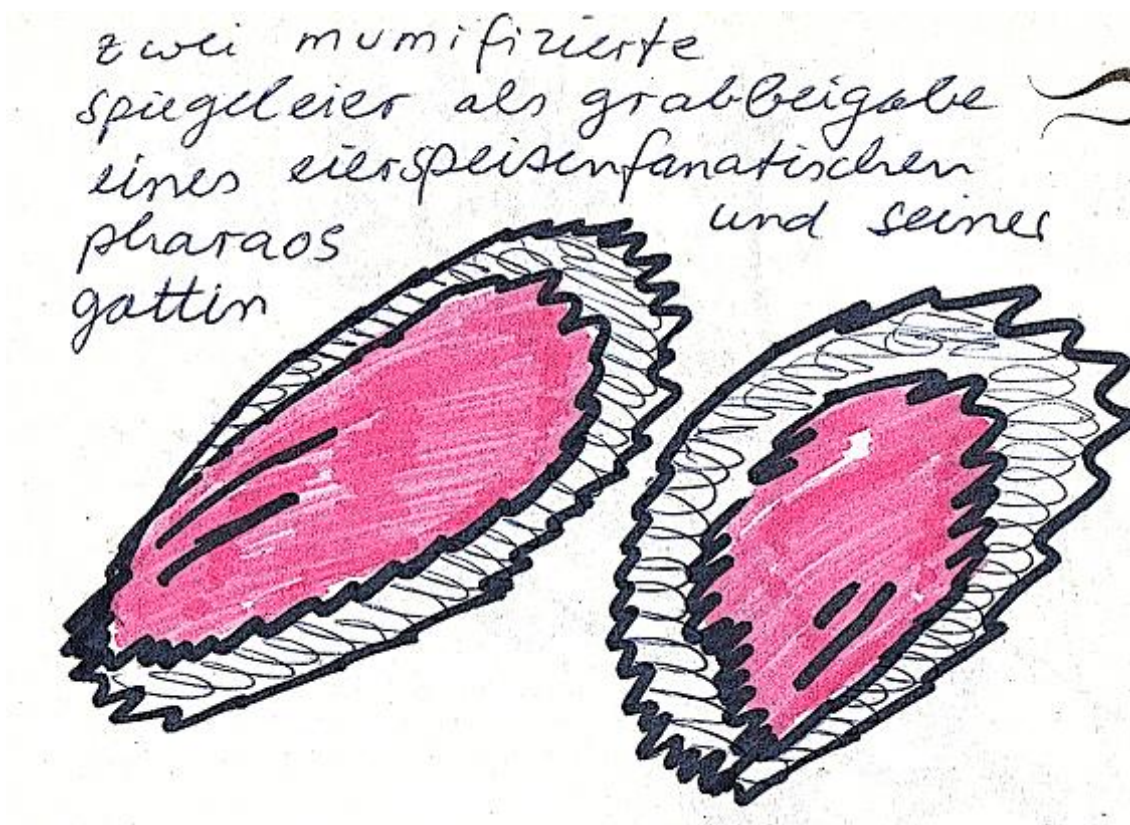 zwei mumifizierte
spiegeleier als grabbeigabe
eines eierspeisenfanatischen
pharaos und seiner
gattin